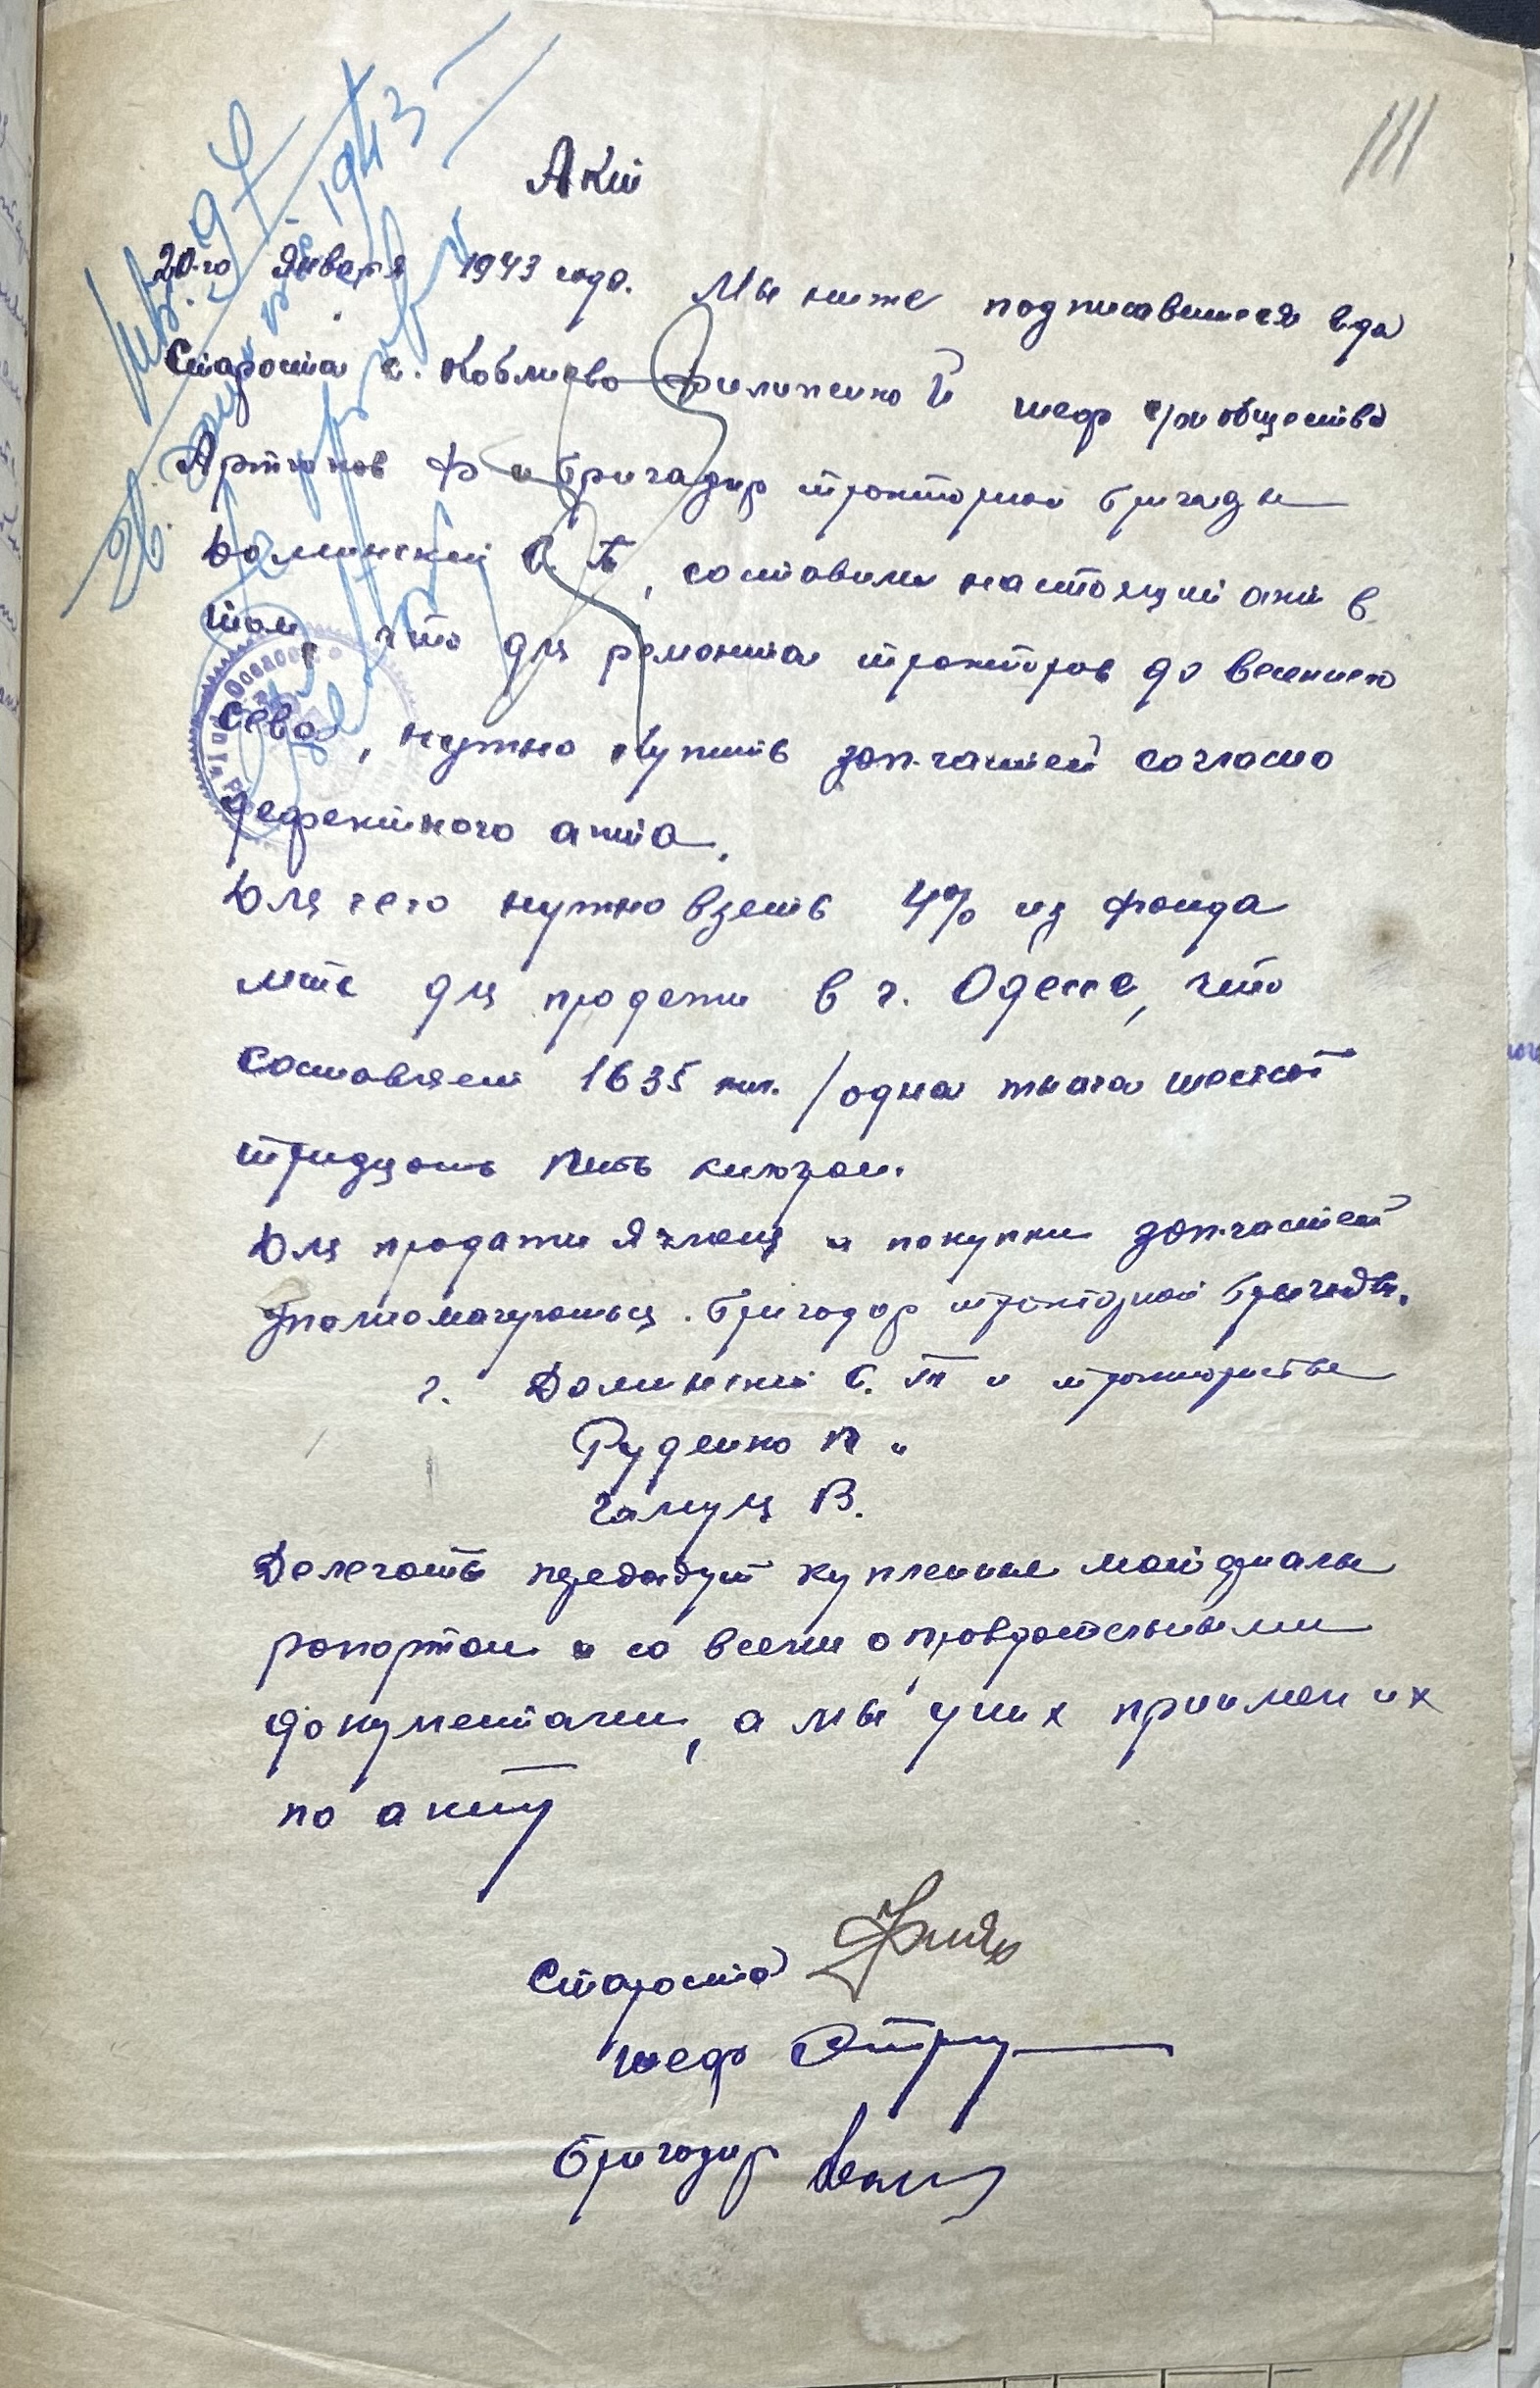 111
Акт
20-го Января 1943 года. Мы ниже подписавшиеся
Староста с. Коблиево Филипенко И шеф с/х общества
Артюхов Ф и бригадир тракторной бригады
Долинский С. П, составили настоящий акт в
том, что для ремонта тракторов до весеннего
сева, нужно купить зап.частей согласно
дефектного акта.
Для чего нужно взять 4% из фонда
мтс для продажи в г. Одессе, что
составляет 1635 кил. /одна тысяча шестсот
тридцать пять килограм.
Для продажи Ячменя и покупки зап.частей
уполномачуються. бригадир тракторной бригады.
г. Долинский С. П и трактористы
Руденко П и
Гамуля В.
Делегаты передадут купленные материалы
рапортом и со всеми оправдательными
документами, а мы у них приимем их
по акту
Староста
шеф
Бригадир
1943